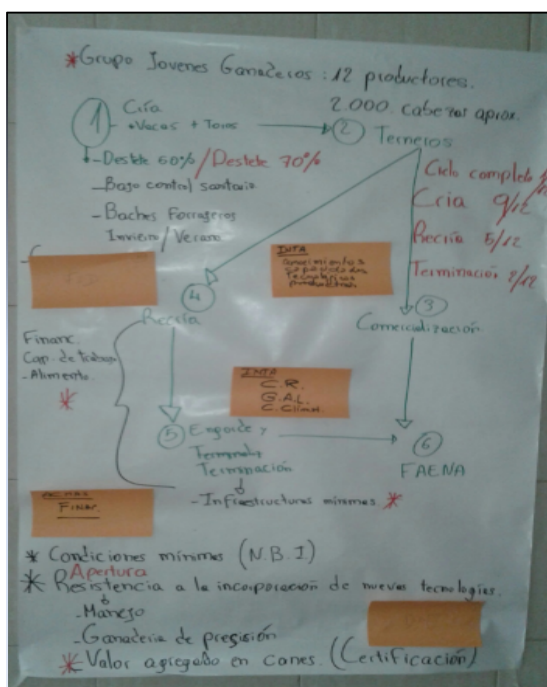 *Grupo Jovenes Ganaderos : 12 productores.
2.000. cabezas aprox.
1 Cría
+Vacas + Toros
2 Terneros
-Destete 60% / Destete 70%
-Bajo control sanitario
-Baches Forrageros
Invierno / Verano
Ciclo completo
Cria 9/12
Recría 5/12
Terminación 2/12
INTA
conocimientos
tecnologías
productivas
4
Recría
3
Comercialización
Financ.
Cap. de trabajo
-Alimento.
*
INTA
C.R.
G.A.L.
5 Engorde y
Terminación
6
FAENA
-Infraestructuras mínimas *
Finan.
* Condiciones mínimas (N.B.I)
Apertura
* Resistencia a la incorporación de nuevas tecnologías.
-Manejo
-Ganaderia de presisión
* Valor agregado en carnes. (Certificación)